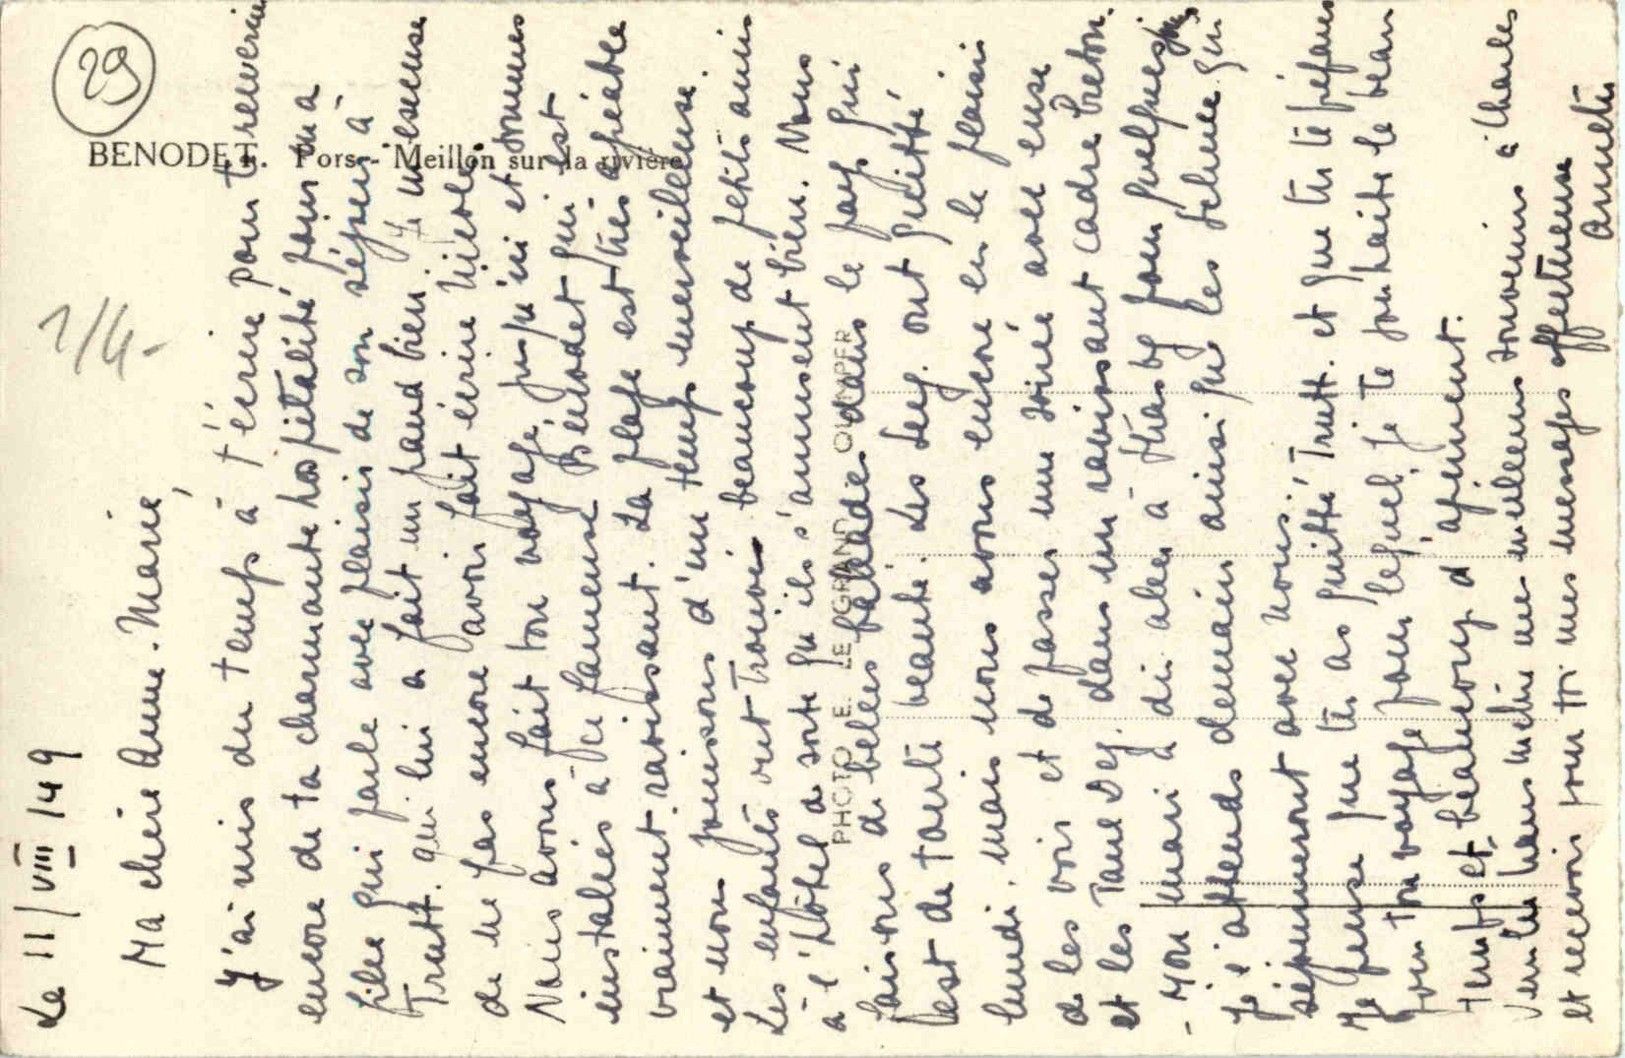 29
BENODET. Pors-Meillon sur la rivière
1/4-
PHOTO E. LE GRAND QUIMPER
Le 11/VIII/49
Ma chère Anne-Marie,
J'ai mis du temps à t'écrire pour te remercier
encore de ta charmante hospitalité pour ma
fille qui parle avec plaisir de son séjour à
Trutt. qui lui a fait un grand bien. Je m'excuse
de ne pas encore avoir fait écrire Nicole.
Nous avons fait bon voyage jusqu'ici et sommes
installés à ce fameux Bénodet qui est
vraiment ravissant. La plage est très agréable
et nous jouissons d'un temps merveilleux.
Les enfants ont trouvé beaucoup de petits amis
à l'hôtel de sorte qu'ils s'amusent bien. Nous
faisons de belles balades dans le pays qui
est de toute beauté. Les Ley. ont quitté
lundi. mais nous avons encore eu le plaisir
de les voir et de passer une soirée avec eux
et les Paul Dey. dans un ravissant cadre breton.
- Mon mari a dû aller à Strasbg pour quelques jrs
Je l'attends demain ainsi que les Schlu. qui
séjourneront avec nous.
Je pense que tu as quitté Trutt. et que tu te prépares
pour ton voyage pour lequel je te souhaite le beau
temps et beaucoup d'agrément.
Veuillez transmettre mes meilleurs souvenirs à Charles
et recevoir pour toi mes messages affectueux
Annette